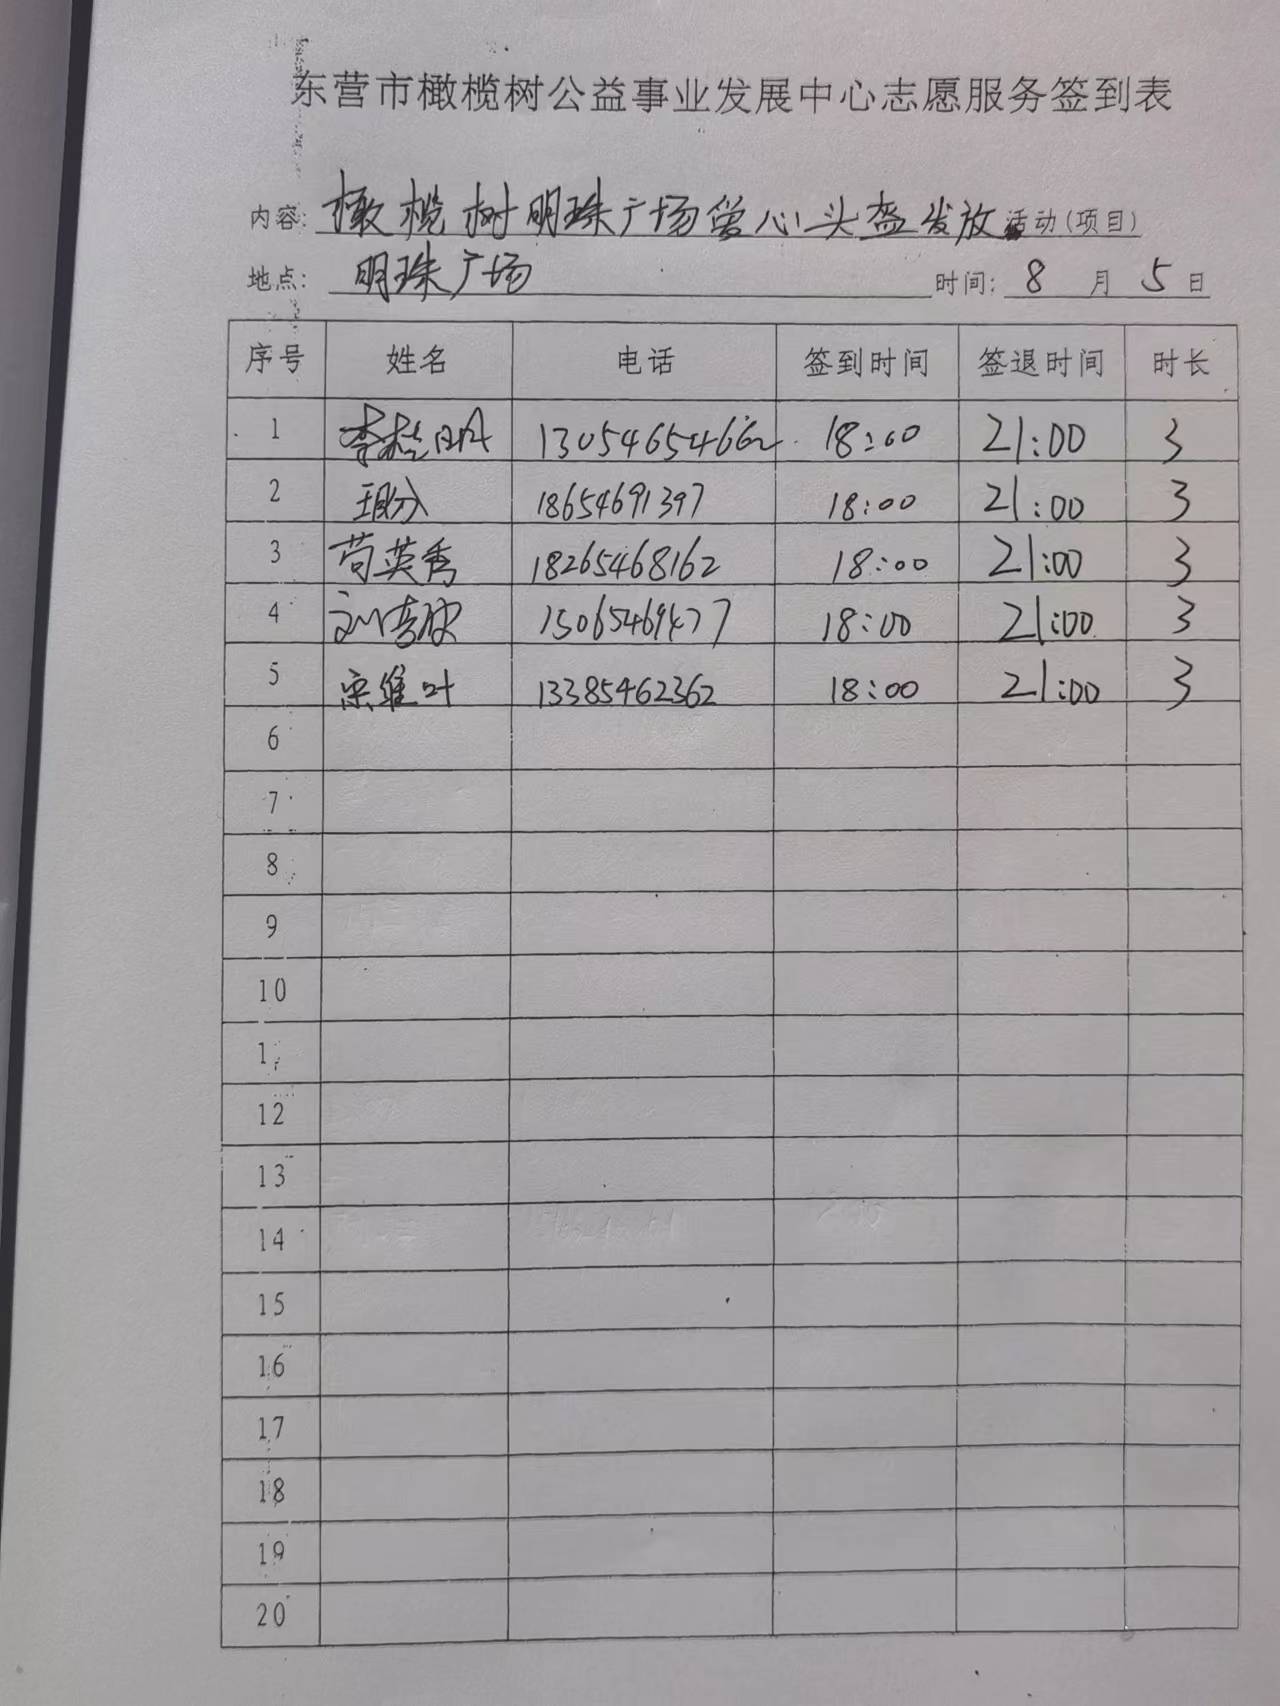 东营市橄榄树公益事业发展中心志愿服务签到表
内容: 橄榄树明珠广场爱心头盔发放活动(项目)
地点: 明珠广场 时间: 8月5日
序号 姓名 电话 签到时间 签退时间 时长
1 李 13054654662 18:00 21:00 3
2 18654691397 18:00 21:00 3
3 苟英秀 18265468162 18:00 21:00 3
4 刘 18:00 21:00 3
5 宋维叶 13385462362 18:00 21:00 3
6
7
8
9
10
1
12
13
14
15
16
17
18
19
20